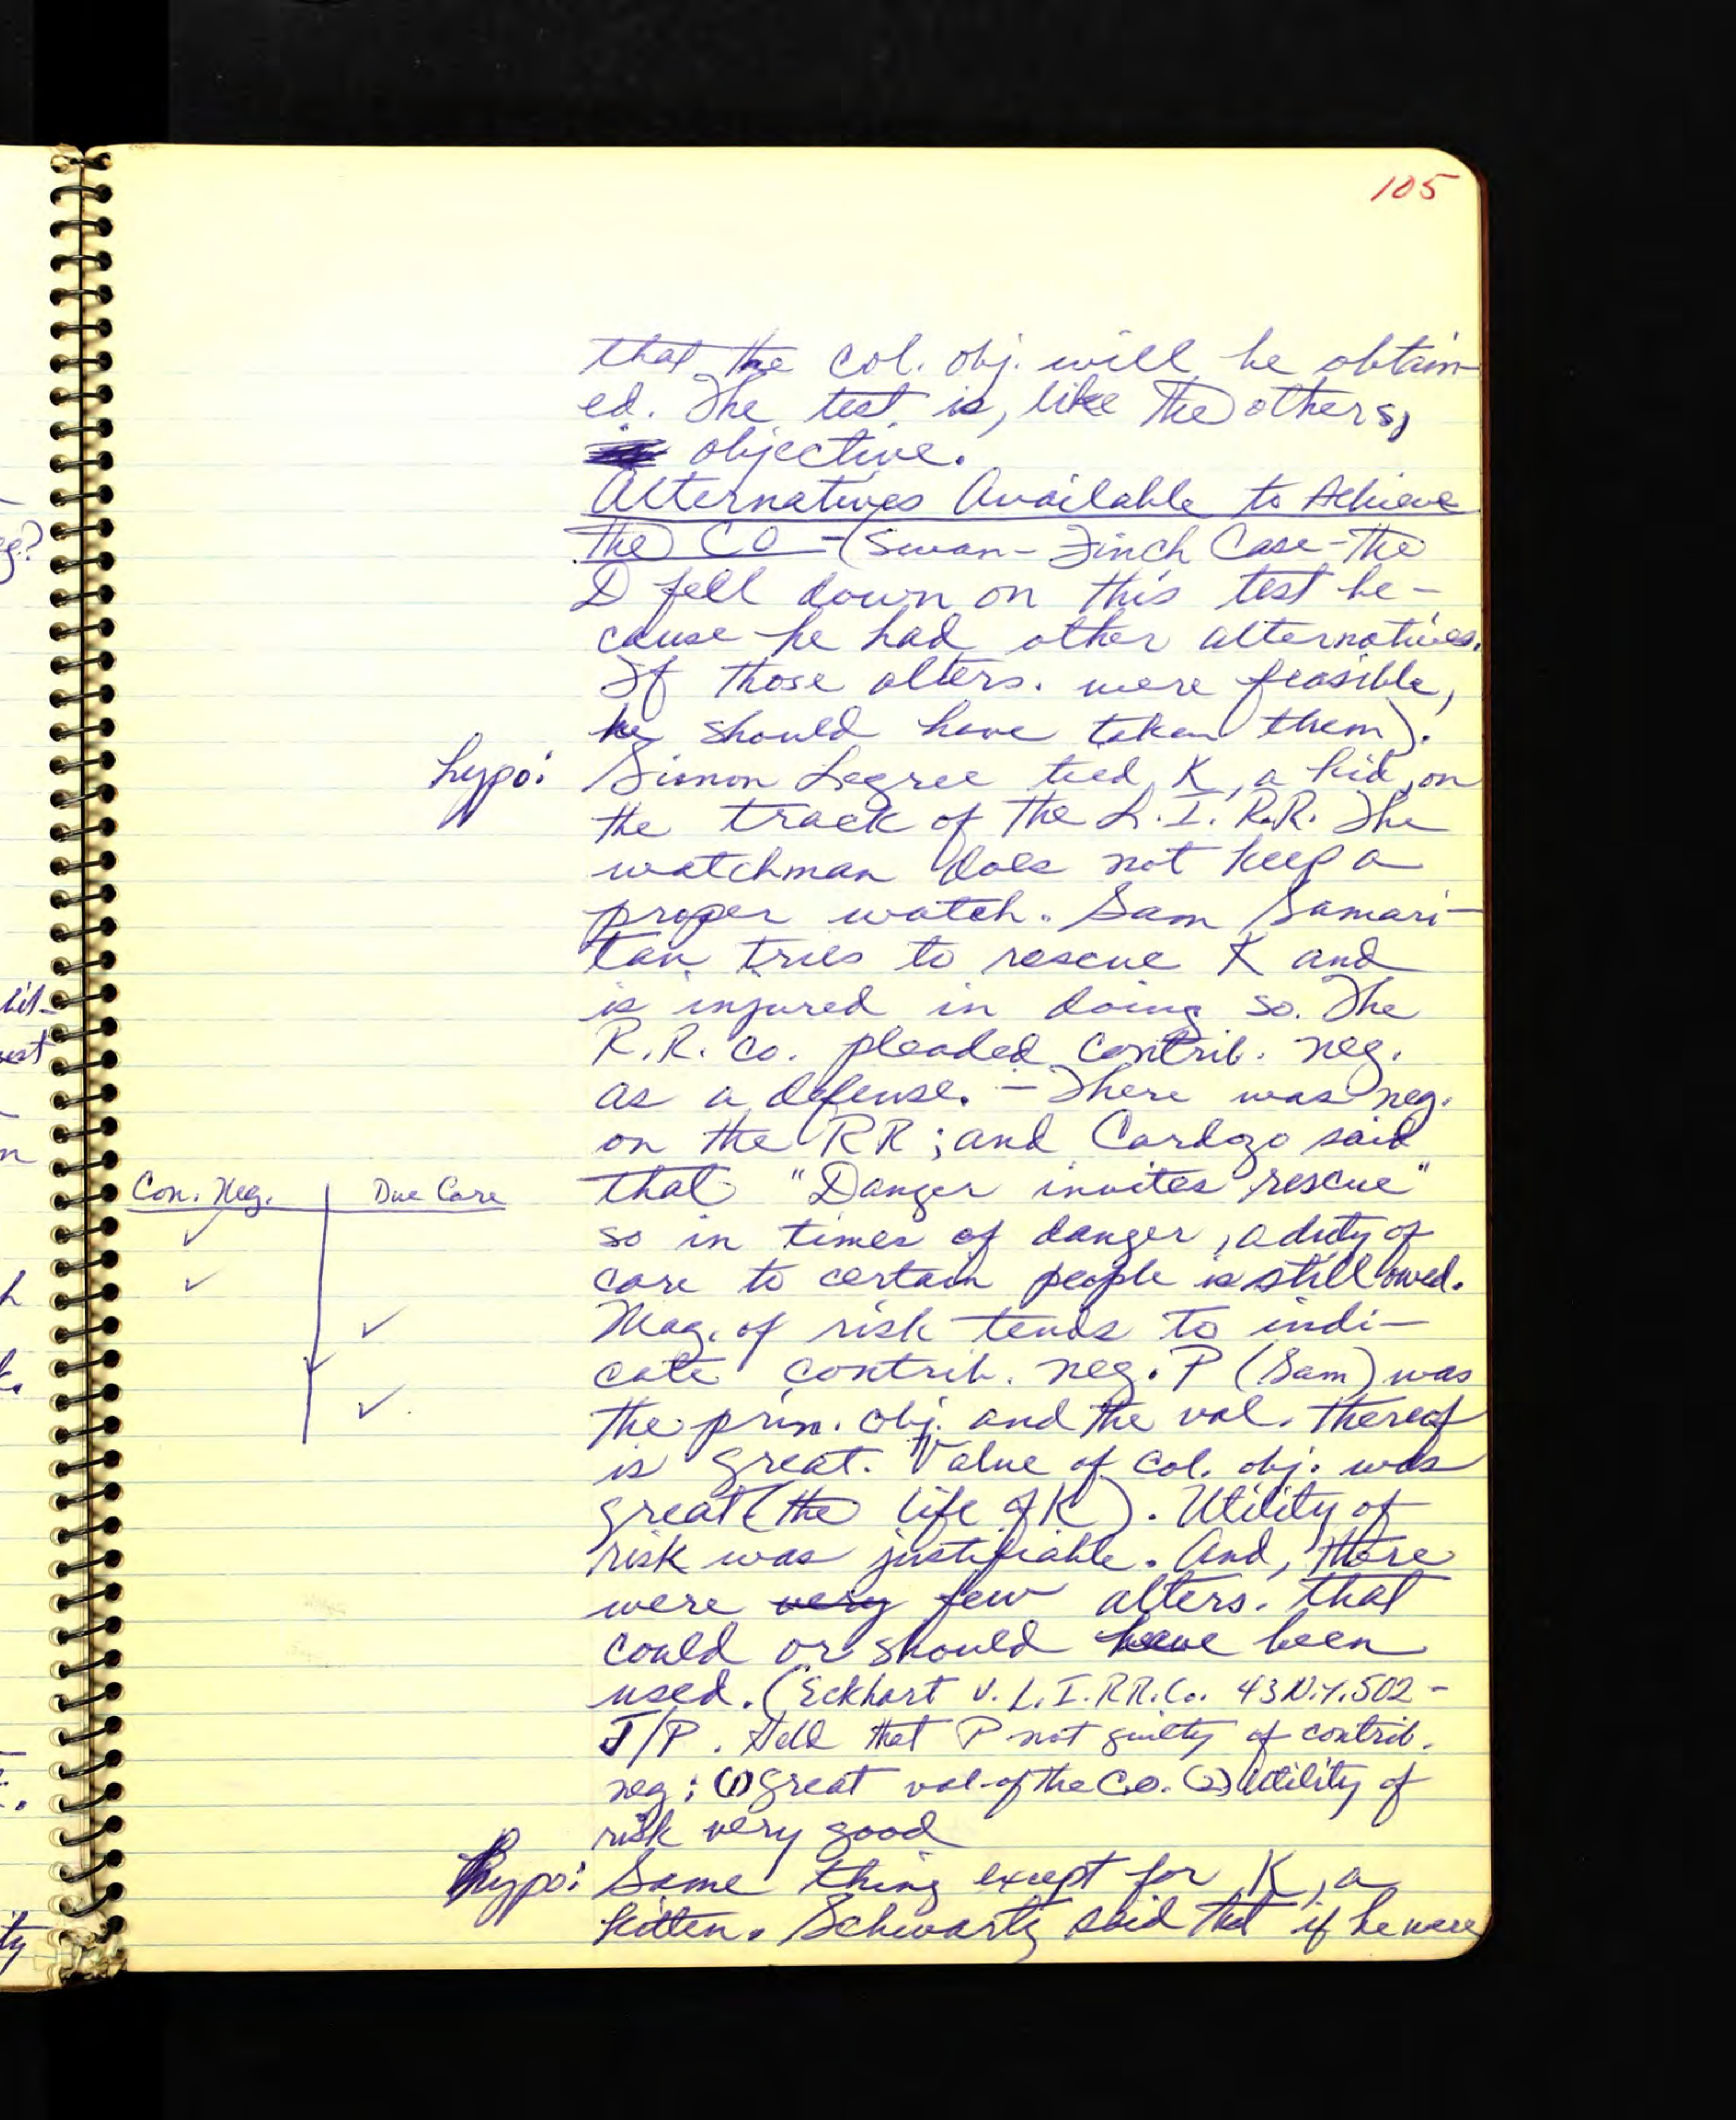 105
that the col. obj. will be obtain-
ed. The test is, like the others,
objective.
Alternatives Available to Achieve
the CO - (Swan-Finch Case - the
D fell down on this test be-
cause he had other alternatives.
If those alters. were feasible,
he should have taken them).
hypo: Simon Legree tied K, a kid, on
the track of the L.I. R.R. The
watchman does not keep a
proper watch. Sam Samari-
tan tries to rescue K and
is injured in doing so. The
R.R. Co. pleaded contrib. neg.
as a defense. - There was neg.
on the RR; and Cardozo said
that "Danger invites rescue"
so in times of danger, a duty of
care to certain people is still owed.
Mag. of risk tends to indi-
cate contrib. neg. P (Sam) was
the prin. obj. and the val. thereof
is great. Value of col. obj. was
great (the life of K). Utility of
risk was justifiable. And, there
were very few alters. that
could or should have been
used. (Eckhart v. L.I.RR.Co. 43 N.Y. 502 -
J/P. Held that P not guilty of contrib.
neg: (1) Great val. of the C.O. (2) Utility of
risk very good
Hypo: Same thing except for K, a
kitten. Schwartz said that if he were
Con. Neg. Due Care
✓
✓
✓
✓
✓.
eg?